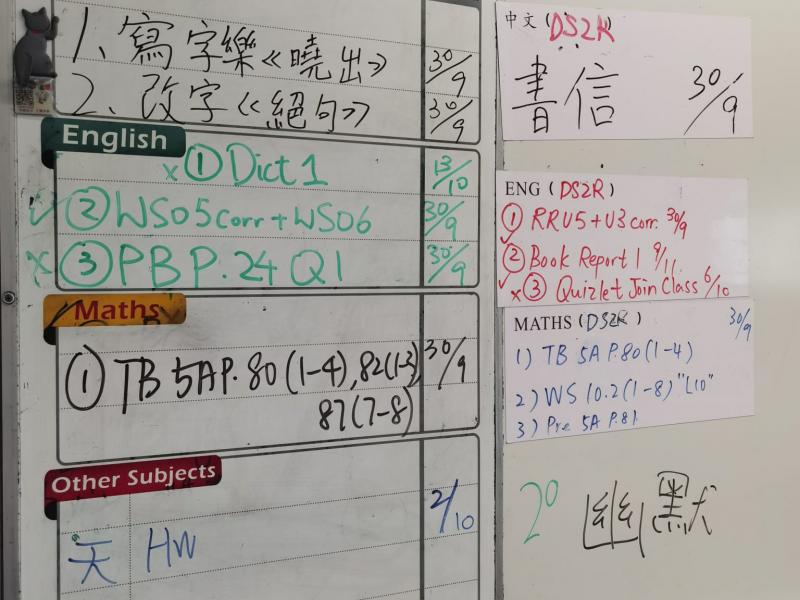 1、寫字樂《曉出》 30/9
2、改字《絕句》 30/9
English
x ① Dict 1 13/10
✓ ② WS05 corr + WS06 30/9
x ③ PB P.24 Q1 30/9
Maths
① TB 5A P.80 (1-4), 82(1-3), 30/9
87(7-8)
Other Subjects
天 HW 2/10
中文 (DS2R)
書信 30/9
ENG (DS2R)
① RRU5 + U3 corr. 30/9
② Book Report 1 9/11
x ③ Quizlet Join Class 6/10
MATHS (DS2R) 30/9
1) TB 5A P.80 (1-4)
2) WS 10.2 (1-8) "L10"
3) Pre 5A P.81
20 幽默